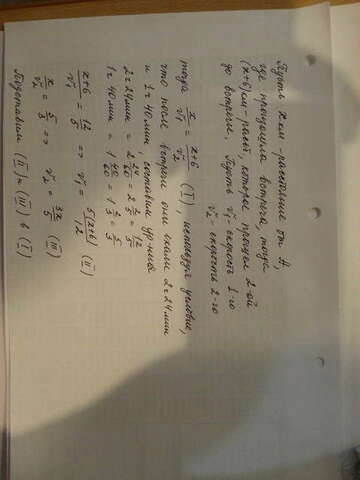 Пусть x км - расстояние от A,
где произошла встреча, тогда
(x+6) км - путь, которое прошел 2-ой
до встречи. Пусть v₁ - скорость 1-го
v₂ - скорость 2-го
тогда x/v₁ = x+6/v₂ (I), используя условие,
что после встречи они ехали 2ч 24мин
и 1ч 40мин, составим ур-ния
2ч 24мин = 2 24/60 = 2 2/5 = 12/5
1ч 40мин = 1 40/60 = 1 2/3 = 5/3
x+6/v₁ = 12/5 => v₁ = 5(x+6)/12 (II)
x/v₂ = 5/3 => v₂ = 3x/5 (III)
Подставим (II) и (III) в (I)